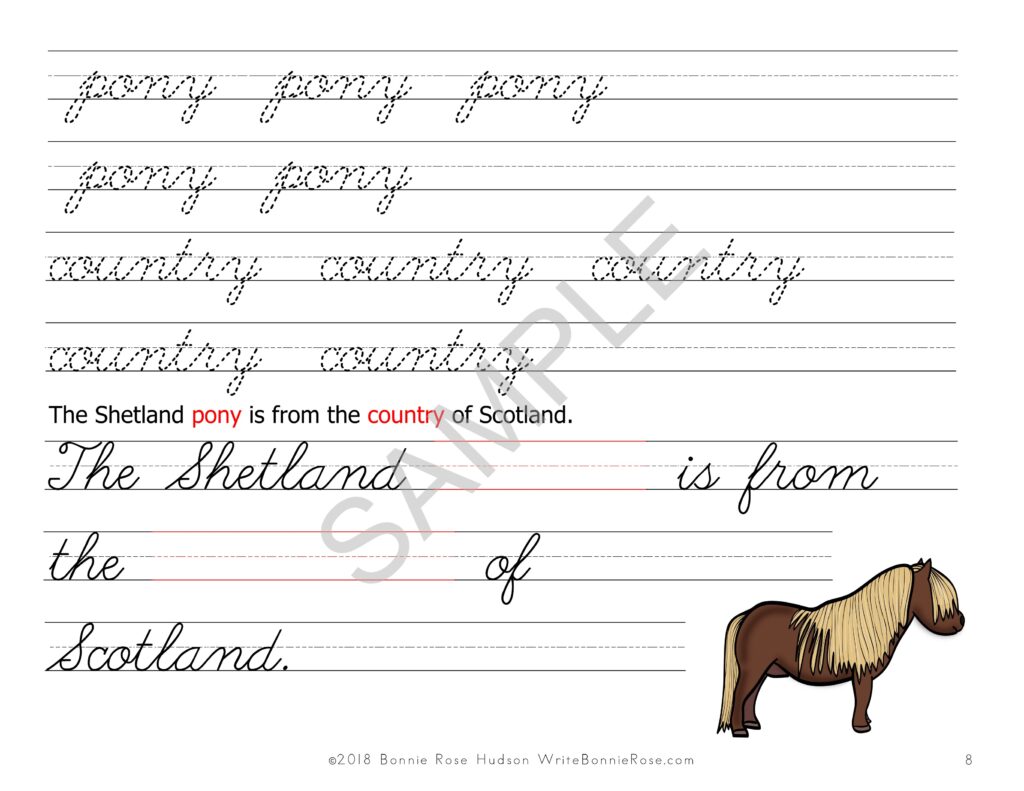 pony pony pony
pony pony
country country country
country country
The Shetland pony is from the country of Scotland.
The Shetland is from
the of
Scotland.
SAMPLE
©2018 Bonnie Rose Hudson WriteBonnieRose.com 8